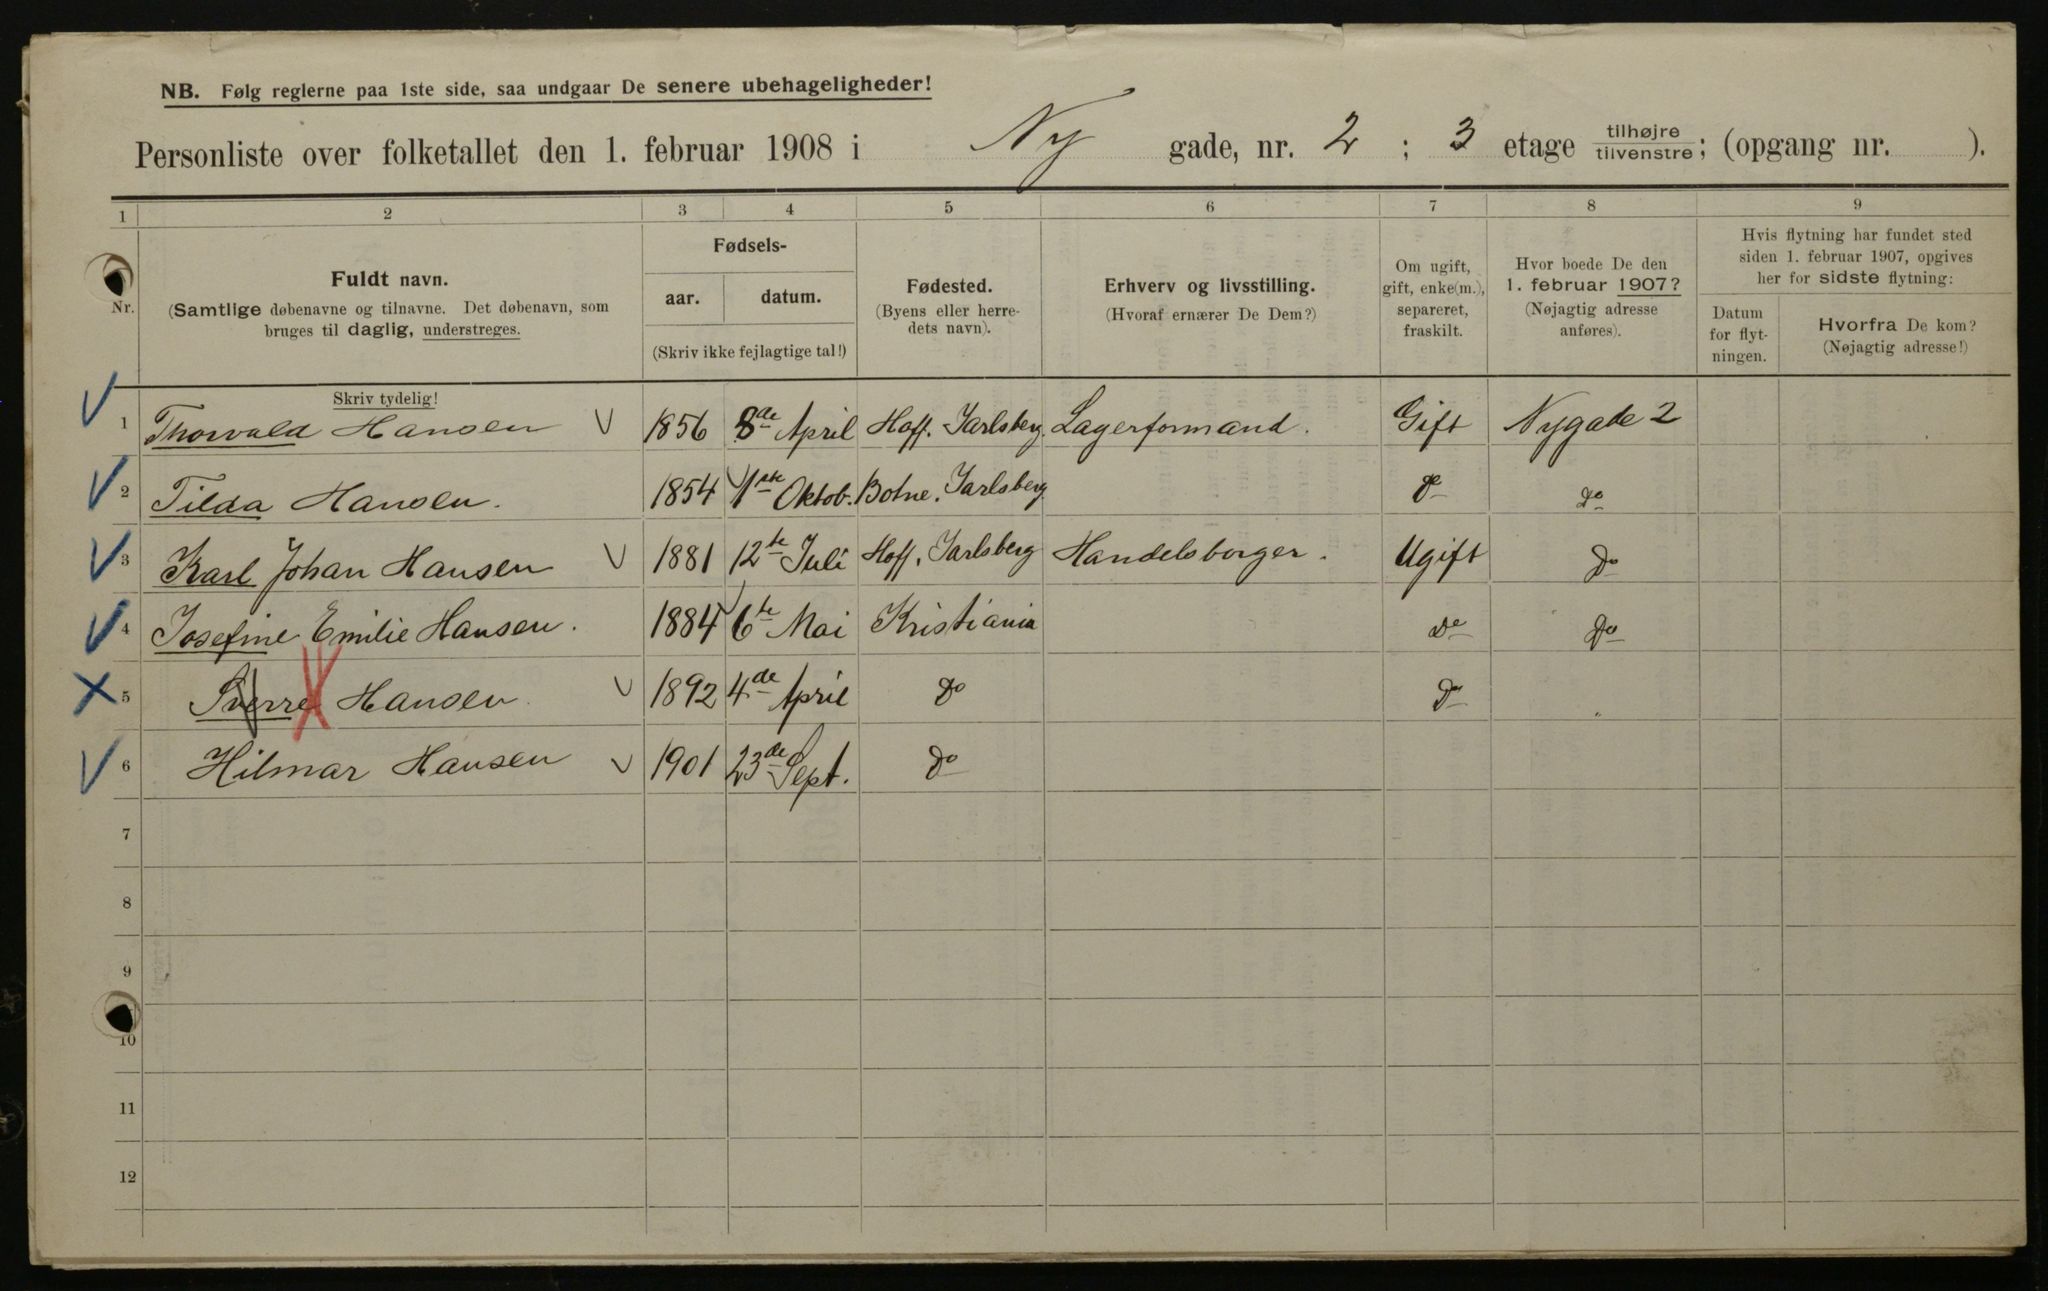 NB. Følg reglerne paa 1ste side, saa undgaar De senere ubehageligheder!
Personliste over folketallet den 1. februar 1908 i Ny gade, nr. 2 ; 3 etage tilhøjre/tilvenstre; (opgang nr. ).
1 2 3 4 5 6 7 8 9
Nr.
Fuldt navn.
(Samtlige døbenavne og tilnavne. Det døbenavn, som
bruges til daglig, understreges.
Skriv tydelig!
Fødsels-
aar. datum.
(Skriv ikke fejlagtige tal!)
Fødested.
(Byens eller herre-
dets navn).
Erhverv og livsstilling.
(Hvoraf ernærer De Dem?)
Om ugift,
gift, enke(m.),
separeret,
fraskilt.
Hvor boede De den
1. februar 1907?
(Nøjagtig adresse
anføres).
Hvis flytning har fundet sted
siden 1. februar 1907, opgives
her for sidste flytning:
Datum
for flyt-
ningen.
Hvorfra De kom?
(Nøjagtig adresse!)
1 Thorvald Hansen 1856 8de April Hoff. Jarlsberg. Lagerformand. Gift Nygade 2
2 Tilda Hansen. 1854 1ste Oktob. Botne. Jarlsberg do do
3 Karl Johan Hansen 1881 12te Juli Hoff. Jarlsberg Handelsborger. Ugift do
4 Josefine Emilie Hansen. 1884 6te Mai Kristiania do do
5 Sverre Hansen. 1892 4de April do do
6 Hilmar Hansen 1901 23de Sept. do
7
8
9
10
11
12